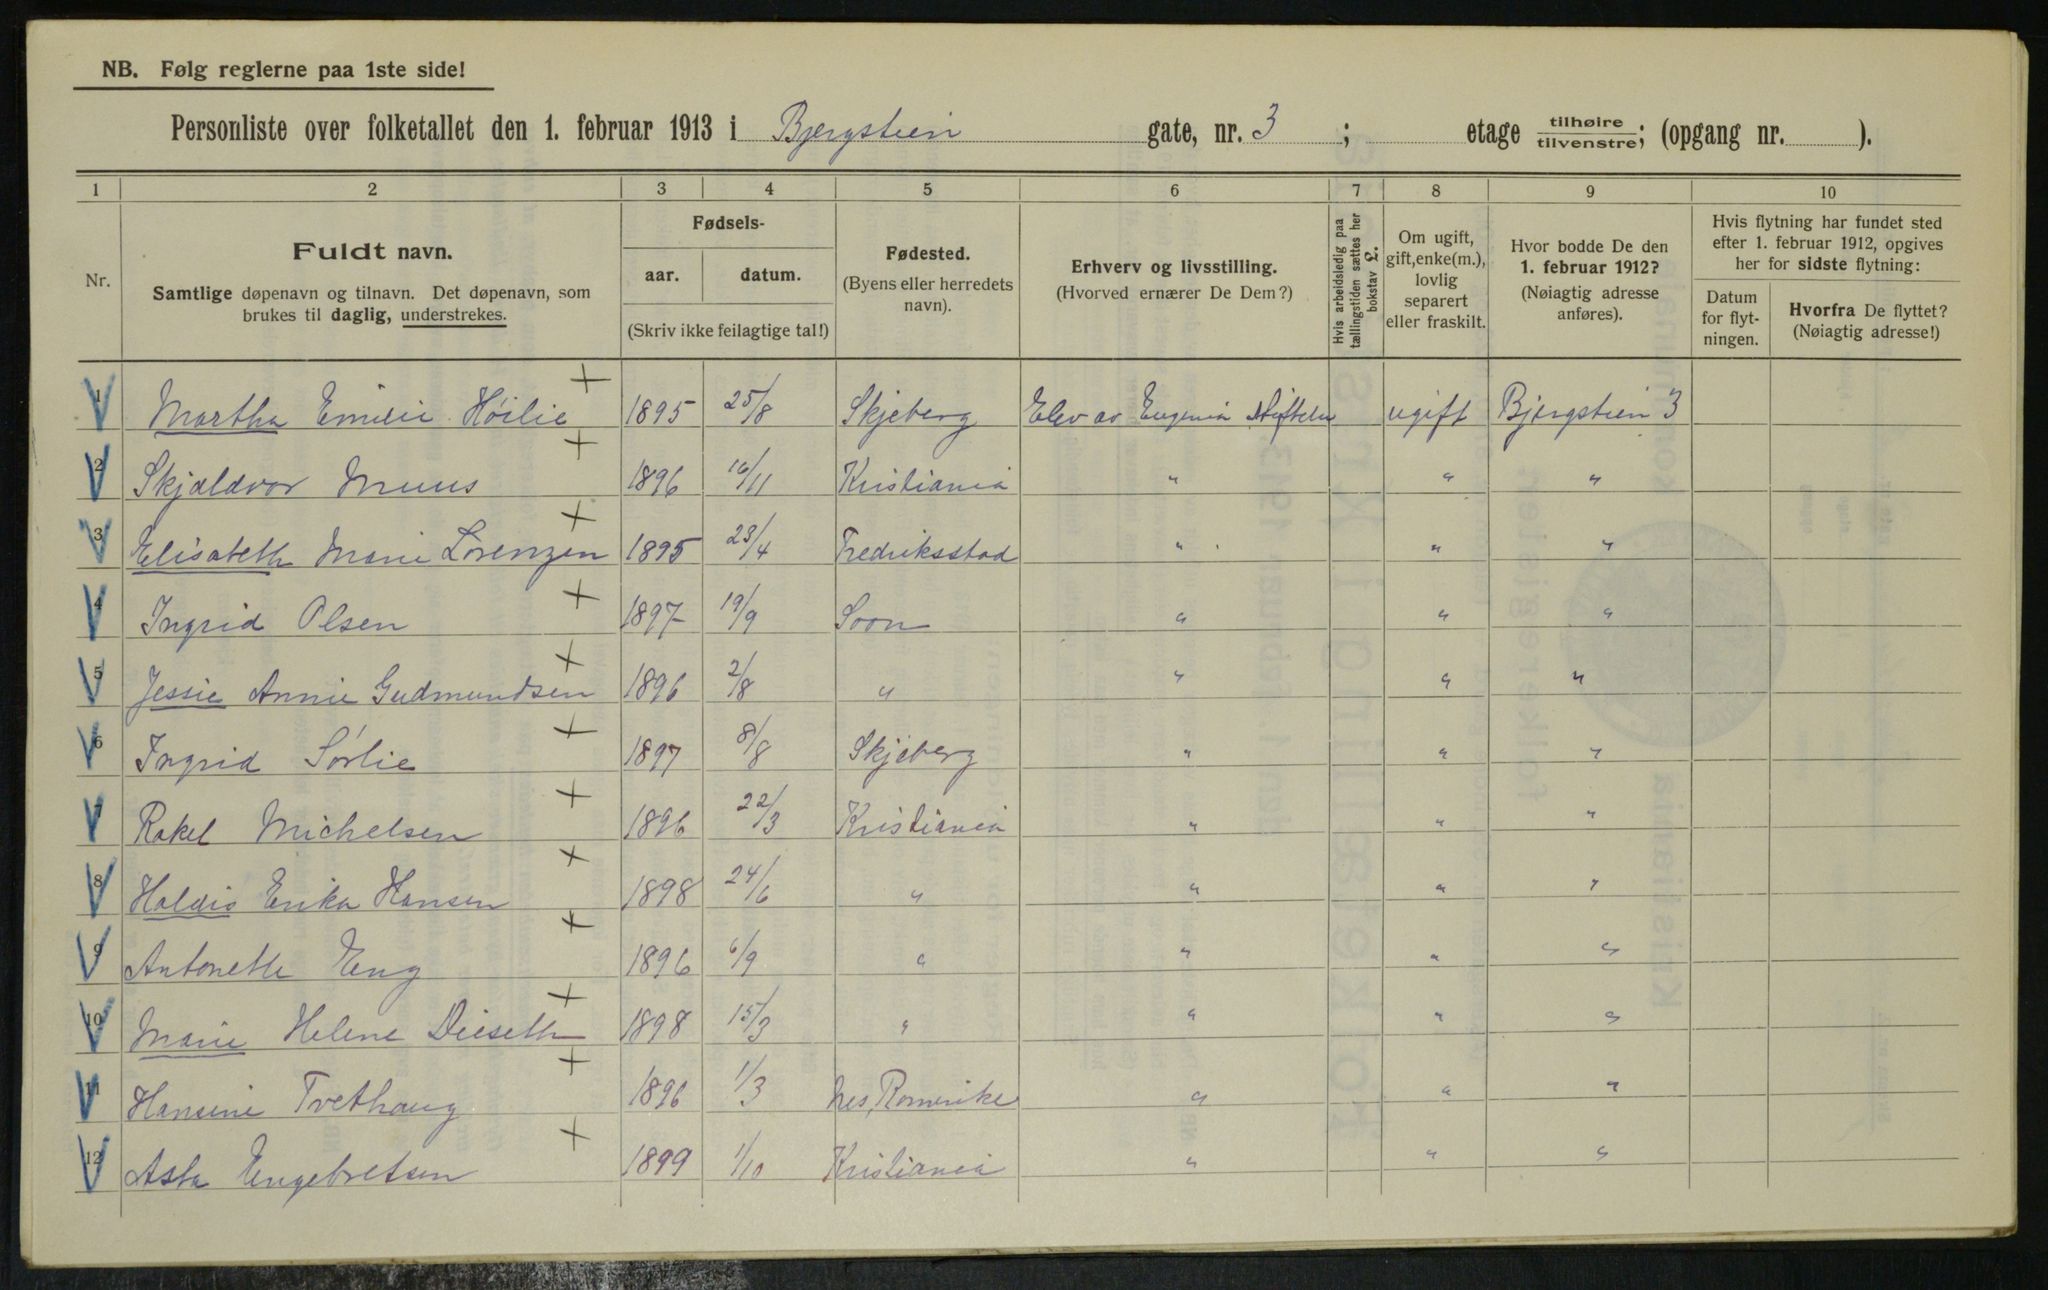 NB. Følg reglerne paa 1ste side!
Personliste over folketallet den 1. februar 1913 i Bjergstien gate, nr. 3 ; etage tilhøire/tilvenstre; (opgang nr. ).
1 2 3 4 5 6 7 8 9 10
Nr.
Fuldt navn.
Samtlige døpenavn og tilnavn. Det døpenavn, som
brukes til daglig, understrekes.
Fødsels-
aar. datum.
(Skriv ikke feilagtige tal!)
Fødested.
(Byens eller herredets
navn).
Erhverv og livsstilling.
(Hvorved ernærer De Dem?)
Hvis arbeidsledig paa
tællingstiden sættes her
bokstav £.
Om ugift,
gift, enke(m.),
lovlig
separert
eller fraskilt.
Hvor bodde De den
1. februar 1912?
(Nøiagtig adresse
anføres).
Hvis flytning har fundet sted
efter 1. februar 1912, opgives
her for sidste flytning:
Datum
for flyt-
ningen.
Hvorfra De flyttet?
(Nøiagtig adresse!)
1 Martha Emilie Høilie 1895 25/8 Skjeberg Elev av Eugenia Stiftelse ugift Bjergstien 3
2 Skjaldvor Muus 1896 16/11 Kristiania " " "
3 Elisabeth Marie Lorenzen 1895 23/4 Fredriksstad " " "
4 Ingrid Olsen 1897 19/9 Soon " " "
5 Jessie Annie Gudmundsen 1896 2/8 " " " "
6 Ingrid Sørlie 1897 8/8 Skjeberg " " "
7 Rakel Michelsen 1896 22/3 Kristiania " " "
8 Haldis Erika Hansen 1898 24/6 " " " "
9 Antonette Eng 1896 6/9 " " " "
10 Marie Helene Dieseth 1898 15/3 " " " "
11 Hansine Tvethaug 1896 1/3 Nes, Romerike " " "
12 Asta Engebretsen 1899 1/10 Kristiania " " "